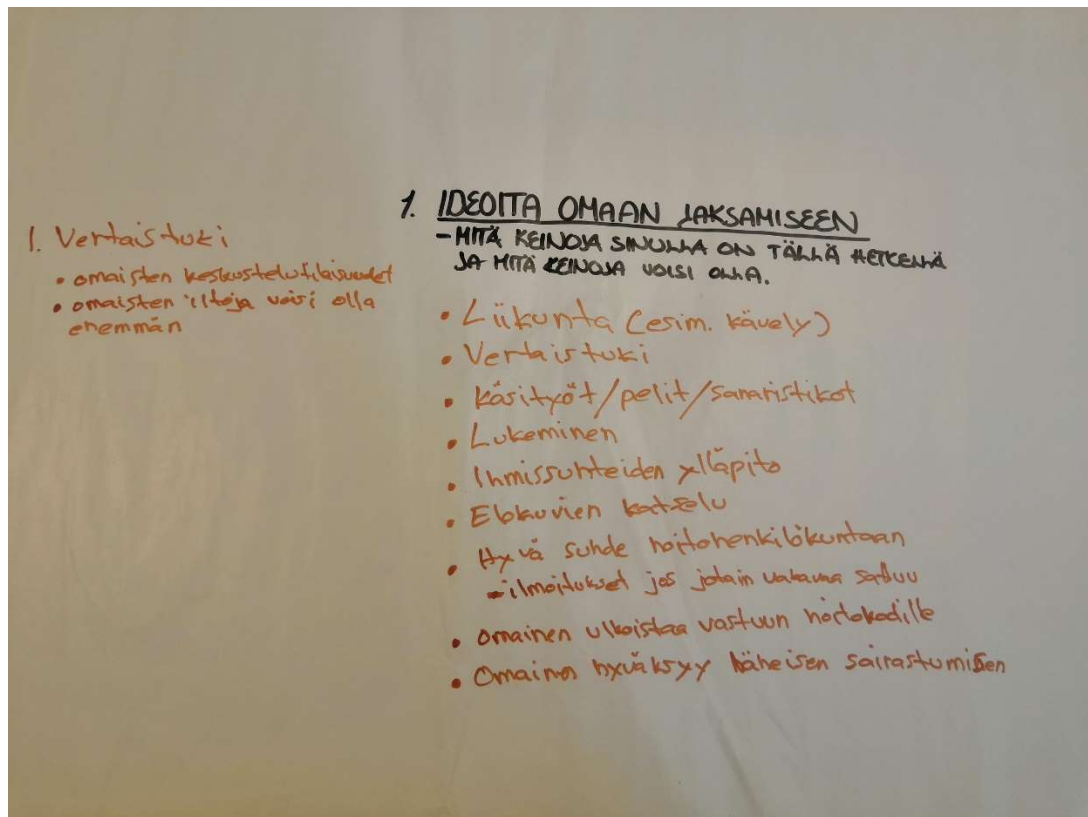 1. Vertaistuki
• omaisten keskustelutilaisuudet
• omaisten iltoja voisi olla
enemmän
1. IDEOITA OMAAN JAKSAMISEEN
- MITÄ KEINOJA SINULLA ON TÄLLÄ HETKELLÄ
JA MITÄ KEINOJA VOISI OLLA.
• Liikunta (esim. kävely)
• Vertaistuki
• Käsityöt/pelit/sanaristikot
• Lukeminen
• Ihmissuhteiden ylläpito
• Elokuvien katselu
• Hyvä suhde hoitohenkilökuntaan
- ilmoitukset jos jotain vakavaa sattuu
• omainen ulkoistaa vastuun hoitokodille
• Omainen hyväksyy läheisen sairastumisen